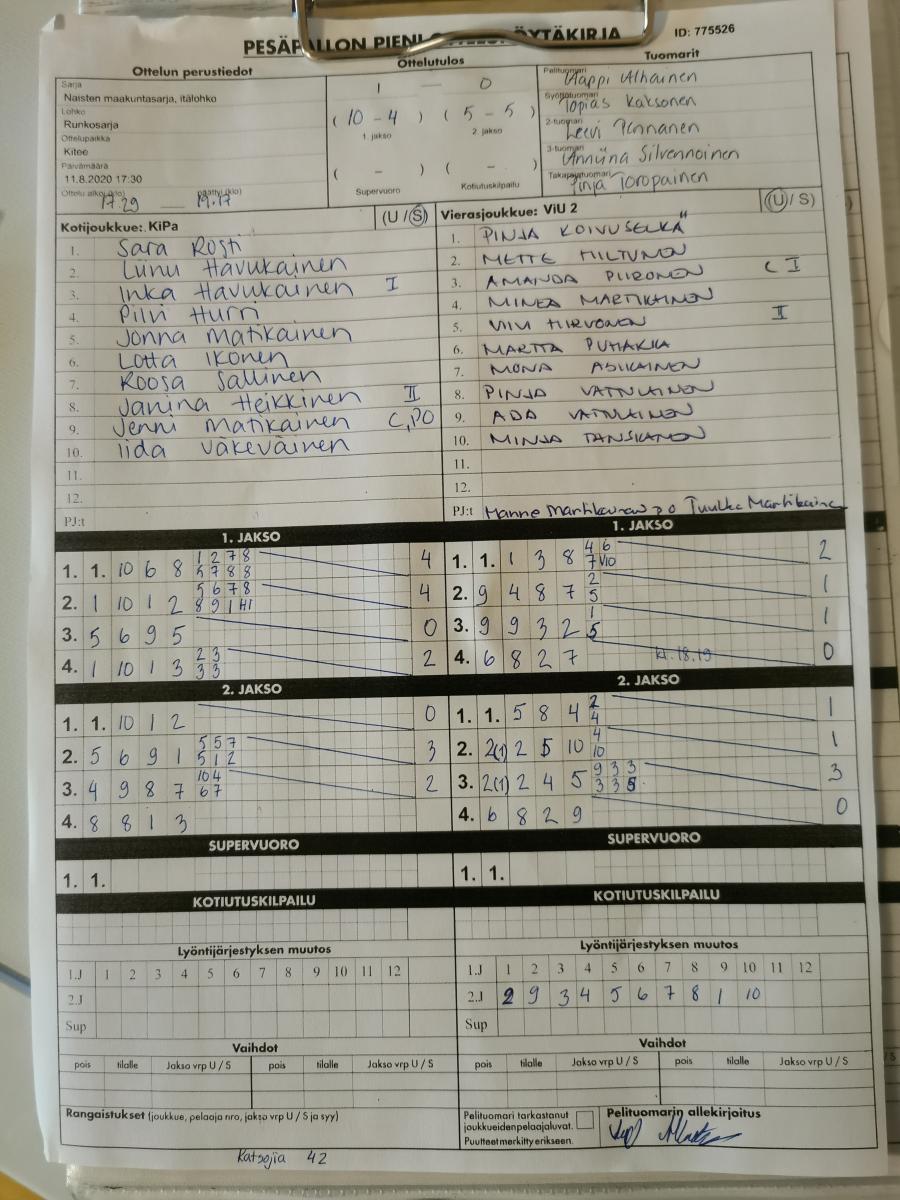 PESÄPALLON PIENI OTTELUPÖYTÄKIRJA
ID: 775526
Ottelun perustiedot
Sarja
Naisten maakuntasarja, itälohko
Lohko
Runkosarja
Ottelupaikka
Kitee
Päivämäärä
11.8.2020 17:30
Ottelu alkoi (klo) päättyi (klo)
17.29 19.17
Ottelutulos
1 — 0
( 10 - 4 ) ( 5 - 5 )
1. jakso 2. jakso
( - ) ( - )
Supervuoro Kotiutuskilpailu
Tuomarit
Pelituomari
Alhainen
Syöttötuomari
Topias Kaksonen
2-tuomari
Leevi Pennanen
3-tuomari
Anniina Silvennoinen
Takarajatuomari
Pinja Toropainen
Kotijoukkue: KiPa (U / S)
1. Sara Rosti
2. Lunu Havukainen
3. Inka Havukainen I
4. Pilvi Hurri
5. Jonna Matikainen
6. Lotta Ikonen
7. Roosa Sallinen
8. Janina Heikkinen II
9. Jenni Matikainen C, PO
10. Iida Väkeväinen
11.
12.
PJ:t
Vierasjoukkue: ViU 2 (U / S)
1. PINJA KOIVUSELKÄ
2. METTE HILTUNEN
3. AMANDA PIIRONEN C I
4. MINEA MARTIKAINEN
5. VIIVI HIRVONEN II
6. MARTTA PUHAKKA
7. MONA ASIKAINEN
8. PINJA VATTULAINEN
9. ADA VATTULAINEN
10. MINJA TANSKANEN
11.
12.
PJ:t Hanne Martikainen PO Tuulke Martikainen
1. JAKSO
1. 1. 10 6 8 1 2 7 8 4
5 7 8 8
2. 1 10 1 2 5 6 7 8 4
8 9 1 H1
3. 5 6 9 5 0
4. 1 10 1 3 2 3 2
3 3
1. JAKSO
1. 1. 1 3 8 4 6 2
7 V10
2. 9 4 8 7 2 1
5
3. 9 9 3 2 1 1
5
4. 6 8 2 7 kl. 18.19 0
2. JAKSO
1. 1. 10 1 2 0
2. 5 6 9 1 5 5 7 3
5 1 2
3. 4 9 8 7 10 4 2
6 7
4. 8 8 1 3
2. JAKSO
1. 1. 5 8 4 2 1
4
2. 2(1) 2 5 10 4 1
10
3. 2(1) 2 4 5 9 3 3 3
3 3 5
4. 6 8 2 9 0
SUPERVUORO
1. 1.
SUPERVUORO
1. 1.
KOTIUTUSKILPAILU
KOTIUTUSKILPAILU
Lyöntijärjestyksen muutos
1.J 1 2 3 4 5 6 7 8 9 10 11 12
2.J
Sup
Lyöntijärjestyksen muutos
1.J 1 2 3 4 5 6 7 8 9 10 11 12
2.J 2 9 3 4 5 6 7 8 1 10
Sup
Vaihdot
pois tilalle Jakso vrp U / S pois tilalle Jakso vrp U / S
Vaihdot
pois tilalle Jakso vrp U / S pois tilalle Jakso vrp U / S
Rangaistukset (joukkue, pelaaja nro, jakso vrp U / S ja syy)
Pelituomari tarkastanut
joukkueiden pelaajaluvat.
Puutteet merkitty erikseen.
Pelituomarin allekirjoitus
Katsojia 42